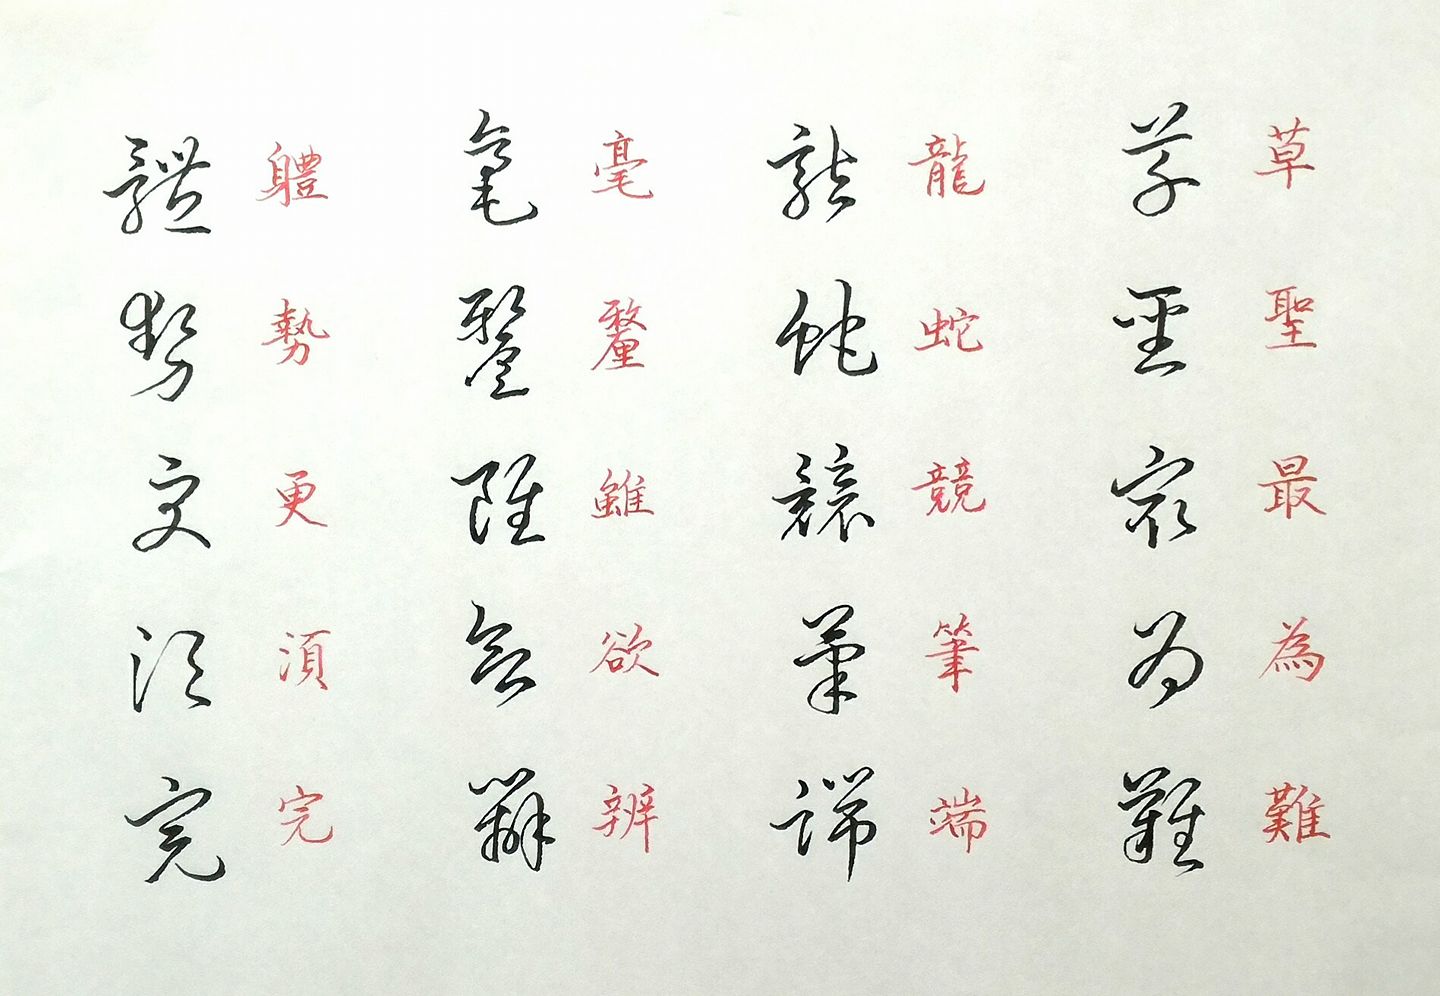 草聖最為難
草聖最為難
龍蛇競筆端
龍蛇競筆端
毫釐雖欲辨
毫釐雖欲辨
軆勢更湏完
軆勢更湏完